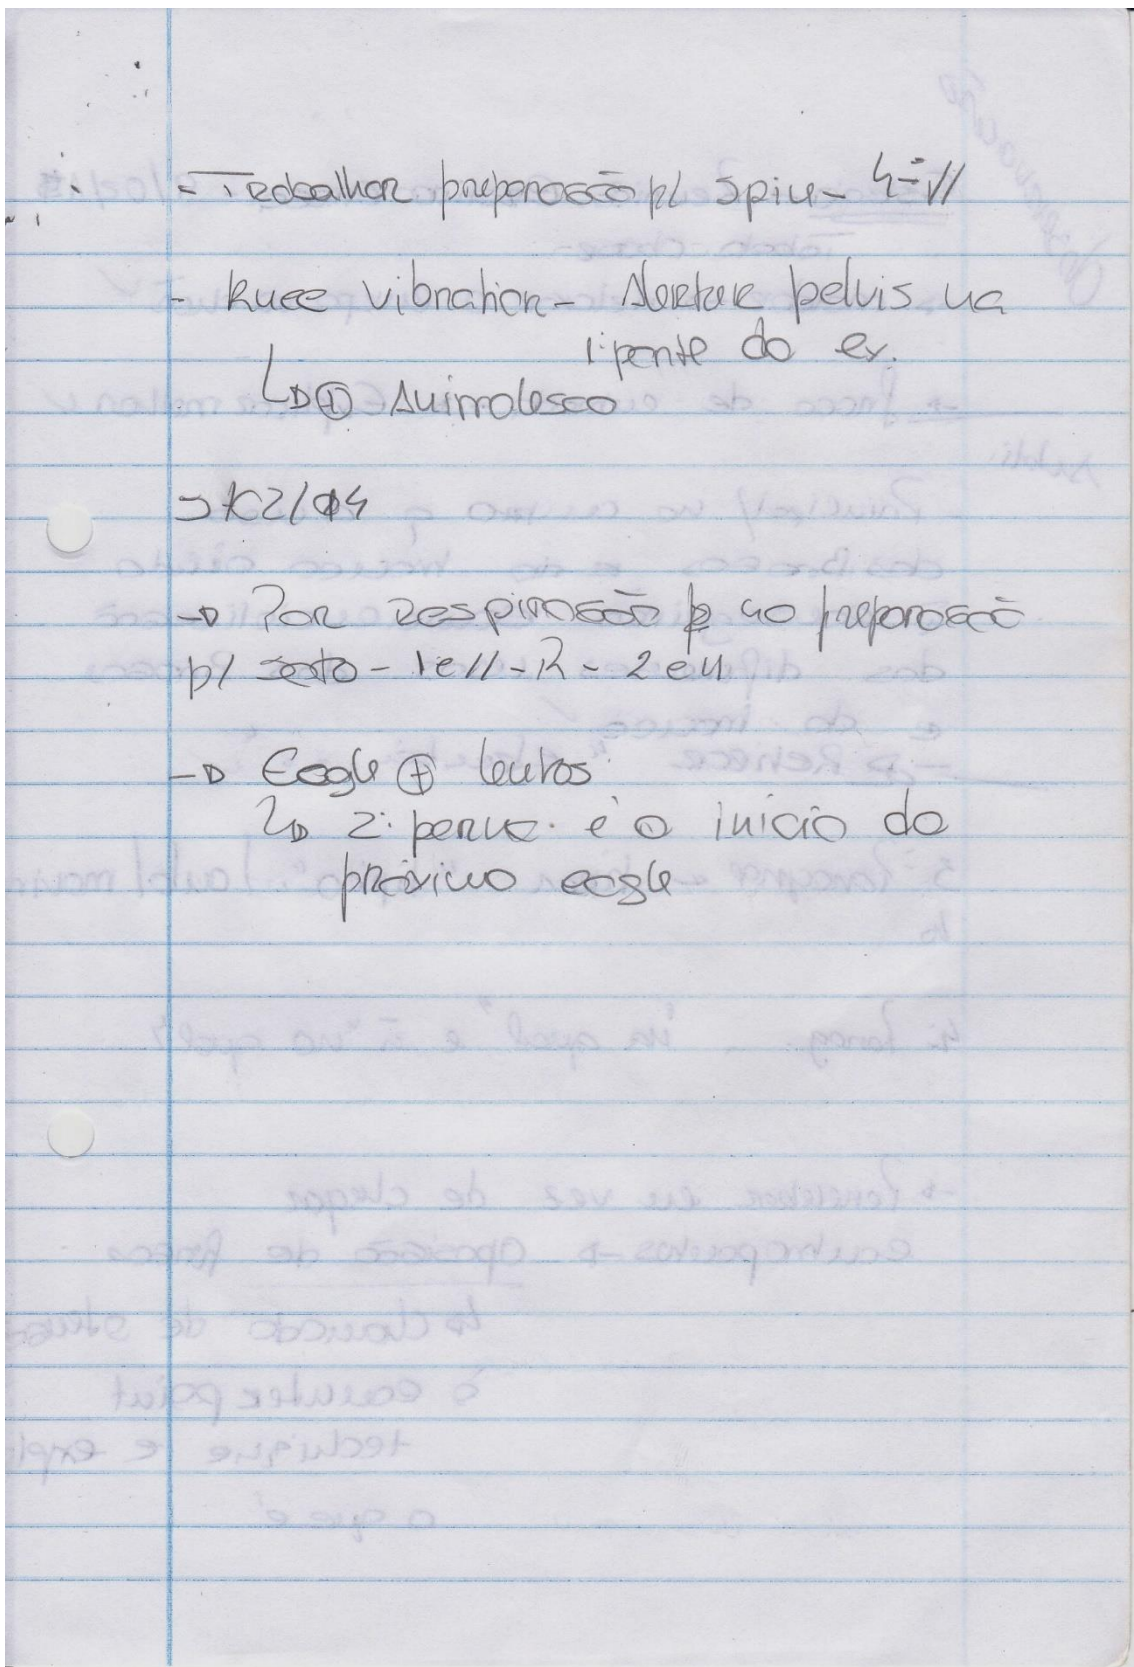 - Trabalhar preparação p/ spin - 4 = //
- Knee vibration - Alertar pelvis na
1ª parte do ex.
↳ ⊕ Animalesco
→ Por respiração na preparação
p/ salto - 1 e // - R - 2 e //
→ Eagle ⊕ lentos
↳ 2ª perna é o início do
próximo eagle